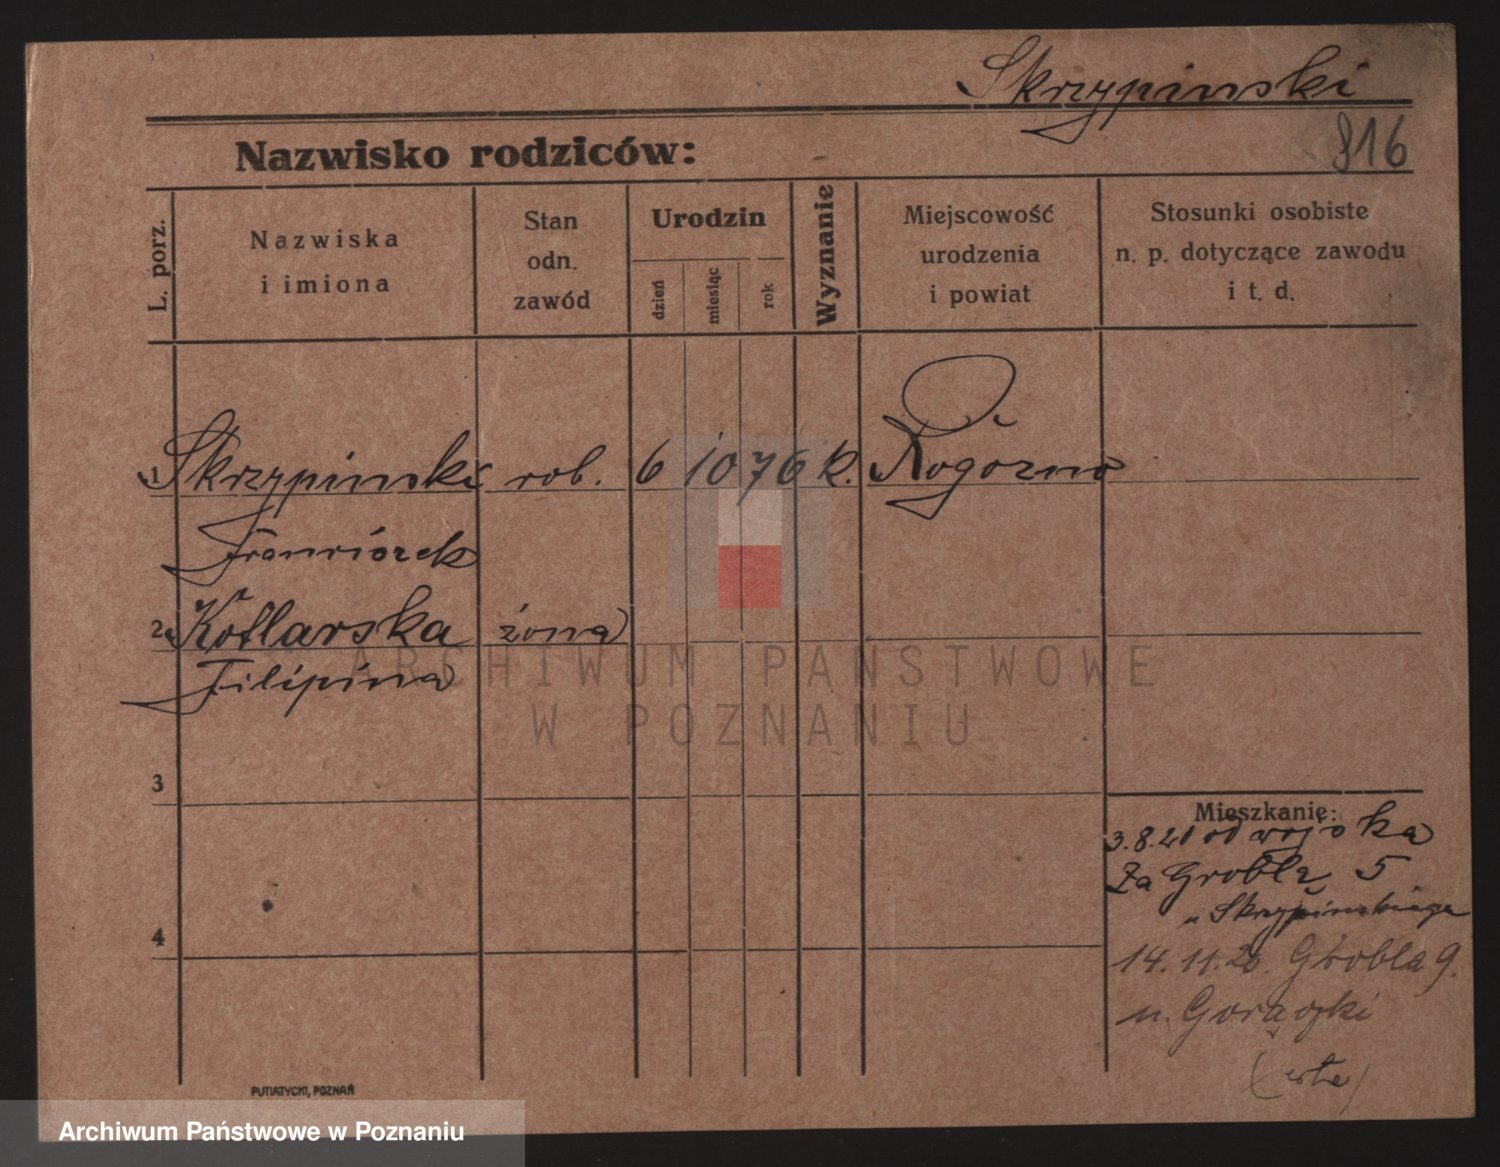 Skrzypinski
Nazwisko rodziców:
816
L. porz.
Nazwiska
i imiona
Stan
odn.
zawód
Urodzin
dzień
miesiąc
rok
Wyznanie
Miejscowość
urodzenia
i powiat
Stosunki osobiste
n. p. dotyczące zawodu
i t. d.
1 Skrzypinski rob. 6 10 76 k. Rogozno
Franciszek
2 Kotlarska żona
Filipina
ARCHIWUM PAŃSTWOWE
W POZNANIU
3
4
Mieszkanie:
3.8.20 od wojska
Za Groblą 5
u Skrzypinskiego
14.11.20. Grobla 9.
u.
PUTIATYCKI, POZNAŃ
Archiwum Państwowe w Poznaniu